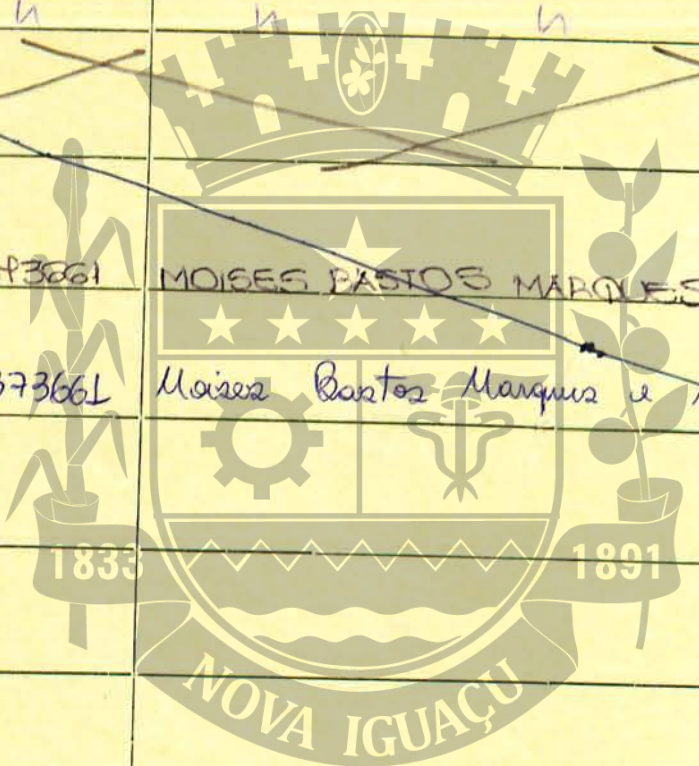 MOISES BASTOS MARQUES
373661 Moises Bastos Marques e
1833 1891
NOVA IGUAÇU